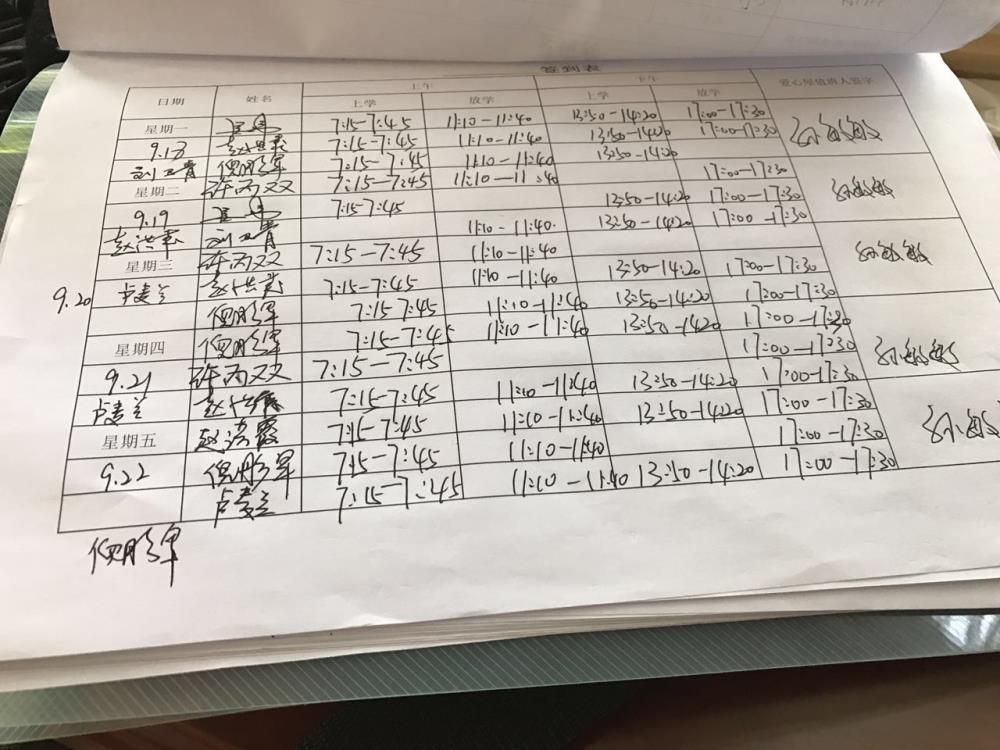 签到表
日期 姓名 上午 下午 爱心屋值班人签字
上学 放学 上学 放学
星期一 7:15-7:45 11:10-11:40 13:50-14:20 17:00-17:30 孙敏敏
9.18 7:15-7:45 11:10-11:40 13:50-1420 17:00-17:30
刘卫青 7:15-7:45 11:10-11:40 13:50-14:20
星期二 许丙双 7:15-7:45 11:10-11:40 17:00-17:30 孙敏敏
9.19 7:15-7:45 13:50-14:20 17:00-17:30
赵洪霞 刘卫青 11:10-11:40. 13:50-1420 17:00-17:30
星期三 许丙双 7:15-7:45 11:10-11:40 孙敏敏
9.20 卢麦兰 7:15-7:45 11:10-11:40 13:50-14:20 17:00-17:30
7:15-7:45 11:10-11:40 13:50-14:20 17:00-17:30
星期四 7:15-7:45 11:10-11:40 13:50-1420 17:00-17:30 孙敏敏
9.21 许丙双 7:15-7:45 17:00-17:30
卢麦兰 7:15-7:45 11:10-11:40 13:50-14:20 17:00-17:30
星期五 赵洪霞 7:15-7:45 11:10-11:40 13:50-14:20 17:00-17:30 孙敏敏
9.22 7:15-7:45 11:10-11:40 17:00-17:30
卢麦兰 7:15-7:45 11:10-11:40 13:50-14:20 17:00-17:30